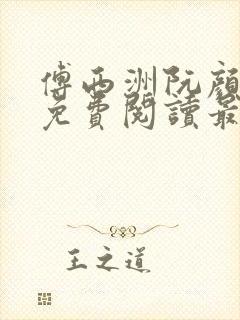 傅西洲阮顏
免費閱讀最
王之道